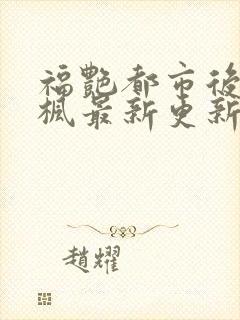 福艷都市後
楓最新更新
趙耀